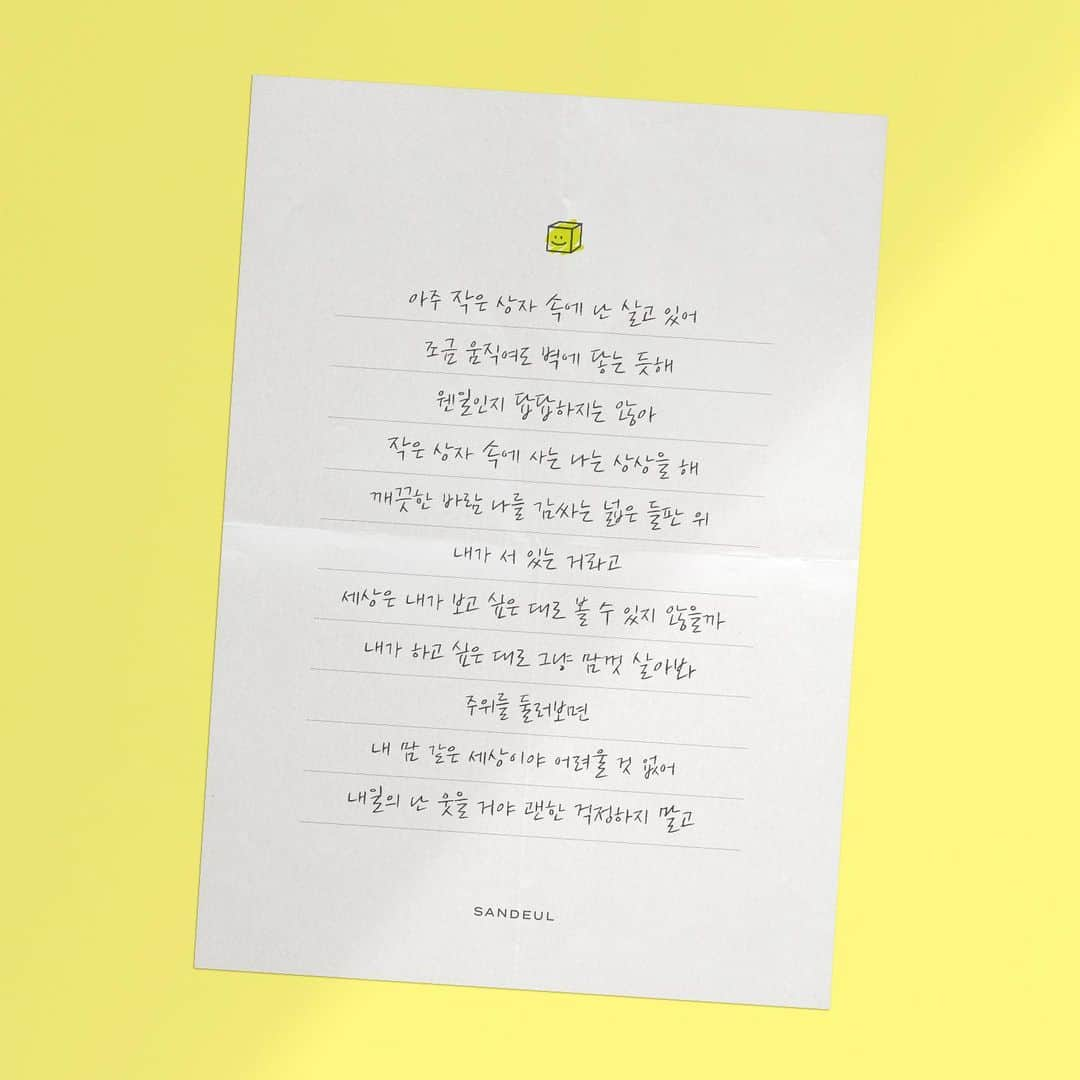 아주 작은 상자 속에 난 살고 있어
조금 움직여도 벽에 닿는 듯해
웬일인지 답답하지는 않아
작은 상자 속에 사는 나는 상상을 해
깨끗한 바람 나를 감싸는 넓은 들판 위
내가 서 있는 거라고
세상은 내가 보고 싶은 대로 볼 수 있지 않을까
내가 하고 싶은 대로 그냥 맘껏 살아봐
주위를 둘러보면
내 맘 같은 세상이야 어려울 것 없어
내일의 난 웃을 거야 괜한 걱정하지 말고
SANDEUL